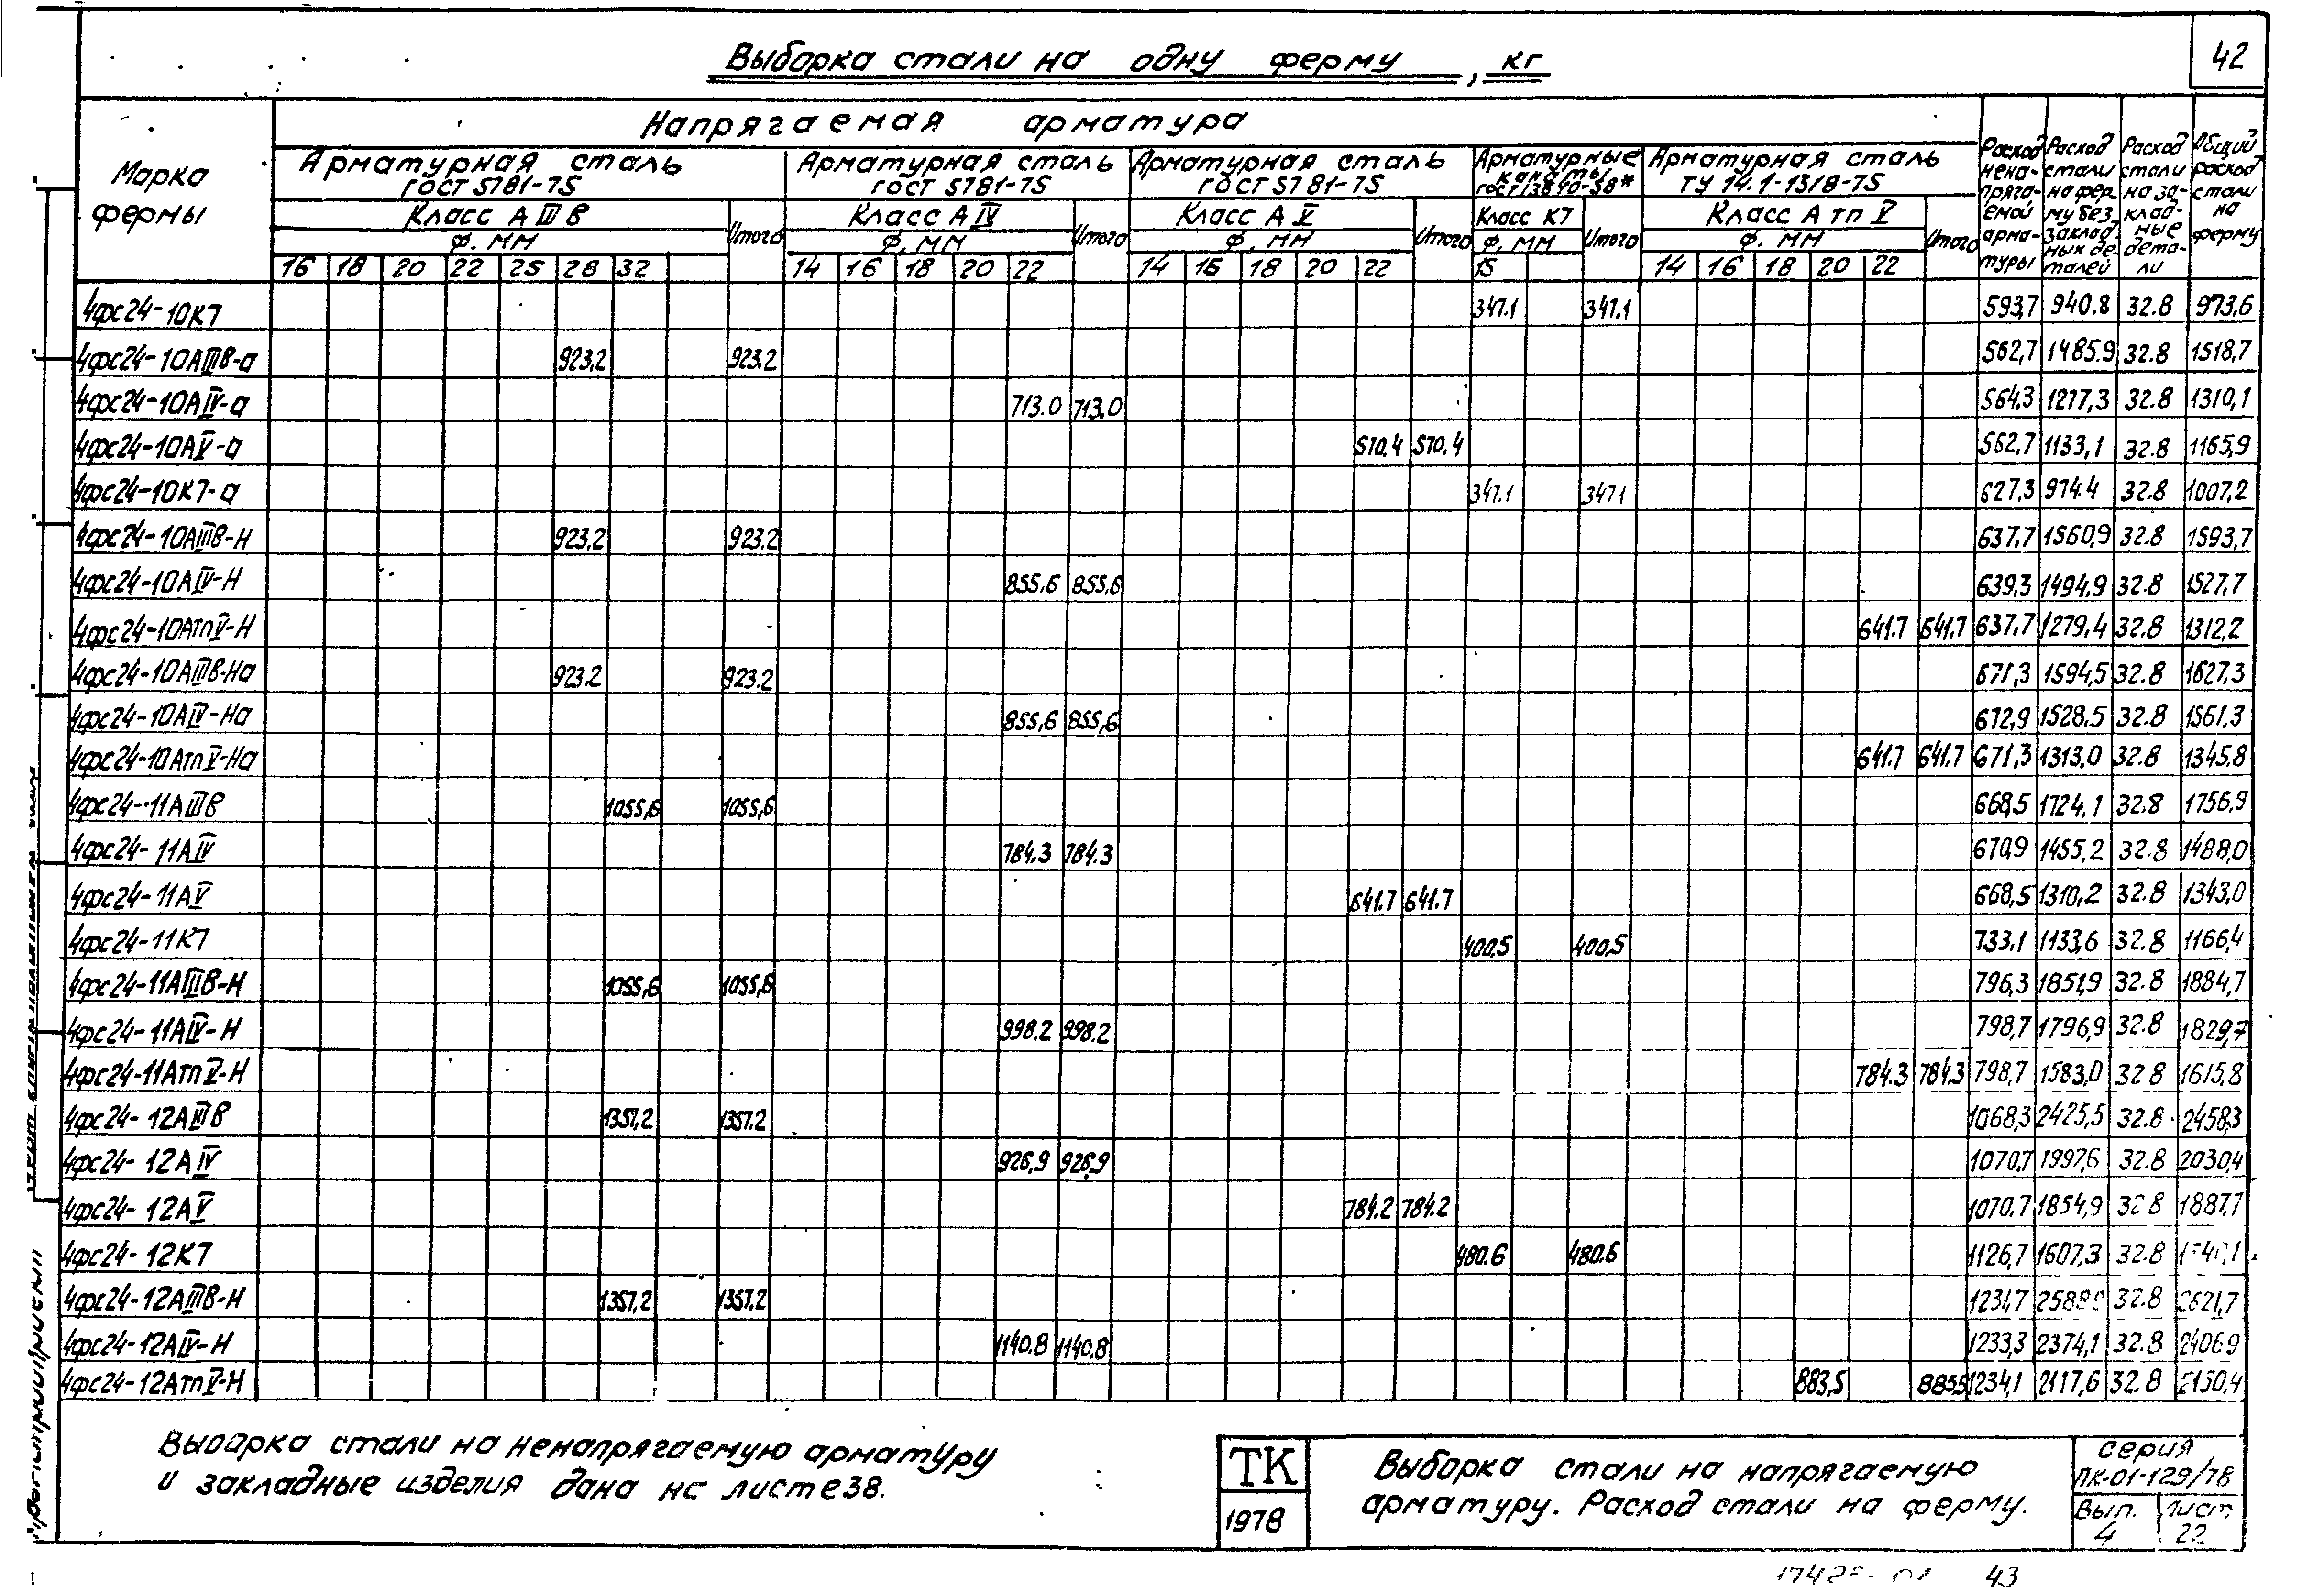 42
Выборка стали на одну ферму, кг
Марка фермы
Напрягаемая арматура
Арматурная сталь ГОСТ 5781-75
Класс А III В
Ф. мм
16 18 20 22 25 28 32
Итого
Арматурная сталь ГОСТ 5781-75
Класс А IV
Ф, мм
14 16 18 20 22
Итого
Арматурная сталь ГОСТ 5781-75
Класс А V
Ф. мм
14 16 18 20 22
Итого
Арматурные канаты ГОСТ 13840-58*
Класс К7
Ф, мм
15
Итого
Арматурная сталь ТУ 14.1-1318-75
Класс Атп V
Ф. мм
14 16 18 20 22
Итого
Расход нена-пряга-емой арма-туры
Расход стали на фер му без заклад. ных де-талей
Расход стали на за-клад-ные дета-ли
Общий расход стали на ферму
4фс24-10К7 347.1 347.1 593,7 940.8 32.8 973,6
4фс24-10АIIIВ-а 923,2 923.2 562,7 1485.9 32.8 1518,7
4фс24-10АIV-а 713.0 713,0 564,3 1277,3 32.8 1310,1
4фс24-10АV-а 570.4 570.4 562,7 1133,1 32.8 1165,9
4фс24-10К7-а 347.1 347.1 627,3 974.4 32.8 1007,2
4фс24-10АIIIВ-Н 923.2 923.2 637.7 1560,9 32.8 1593,7
4фс24-10АIV-Н 855,6 855,6 639,3 1494,9 32.8 1527,7
4фс24-10АтпV-Н 641.7 641.7 637,7 1279,4 32.8 1312,2
4фс24-10АIIIВ-На 923.2 923.2 671,3 1594,5 32.8 1627,3
4фс24-10АIV-На 855,6 855,6 672,9 1528,5 32.8 1561,3
4фс24-10АтпV-На 641.7 641.7 671,3 1313,0 32.8 1345.8
4фс24-11АIIIВ 1055,6 1055,6 668,5 1724,1 32.8 1756,9
4фс24-11АIV 784.3 784.3 670,9 1455,2 32.8 1488,0
4фс24-11АV 641.7 641.7 668,5 1310,2 32.8 1343,0
4фс24-11К7 400,5 400,5 733,1 1133,6 32.8 1166,4
4фс24-11АIIIВ-Н 1055,6 1055,6 796,3 1851,9 32.8 1884,7
4фс24-11АIV-Н 998.2 998.2 798,7 1796,9 32.8 1829,7
4фс24-11АтпV-Н 784.3 784.3 798,7 1583,0 32 8 1615,8
4фс24-12АIIIВ 1357,2 1357.2 1068,3 2425,5 32.8 2458,3
4фс24-12АIV 926,9 926,9 1070,7 1997,6 32.8 2030,4
4фс24-12АV 784.2 784.2 1070.7 1854,9 32 8 1887,7
4фс24-12К7 480.6 480.6 1126,7 1607,3 32.8
4фс24-12АIIIВ-Н 1357,2 1357.2 1231,7 32.8 2621,7
4фс24-12АIV-Н 1140.8 1140.8 1233,3 2374,1 32.8 2406,9
4фс24-12АтпV-Н 883,5 883,5 1234,1 2117,6 32.8 2150,4
Выборка стали на ненапрягаемую арматуру
и закладные изделия дана на листе 38.
ТК
1978
Выборка стали на напрягаемую
арматуру. Расход стали на ферму.
серия
ПК-01-129/78
Вып. 4
Лист 22
43